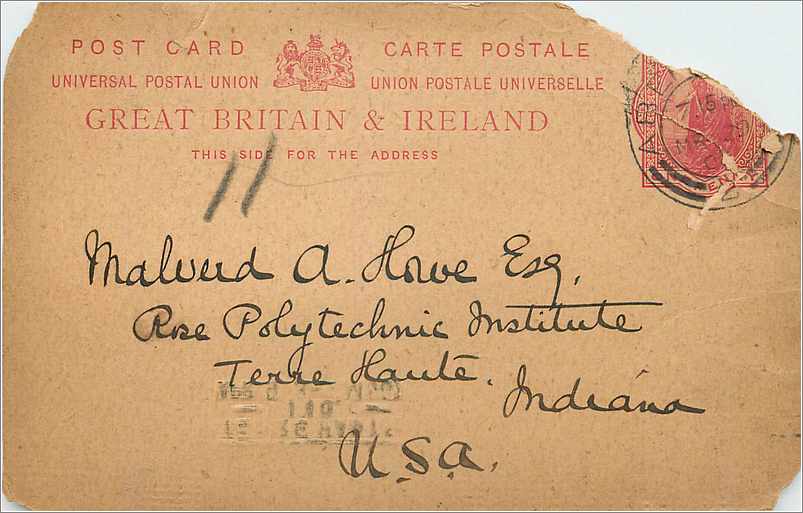 POST CARD CARTE POSTALE
UNIVERSAL POSTAL UNION UNION POSTALE UNIVERSELLE
GREAT BRITAIN & IRELAND
THIS SIDE FOR THE ADDRESS
11
Malverd A. Howe Esq,
Rose Polytechnic Institute
Terre Haute.
Indiana
U.S.A.